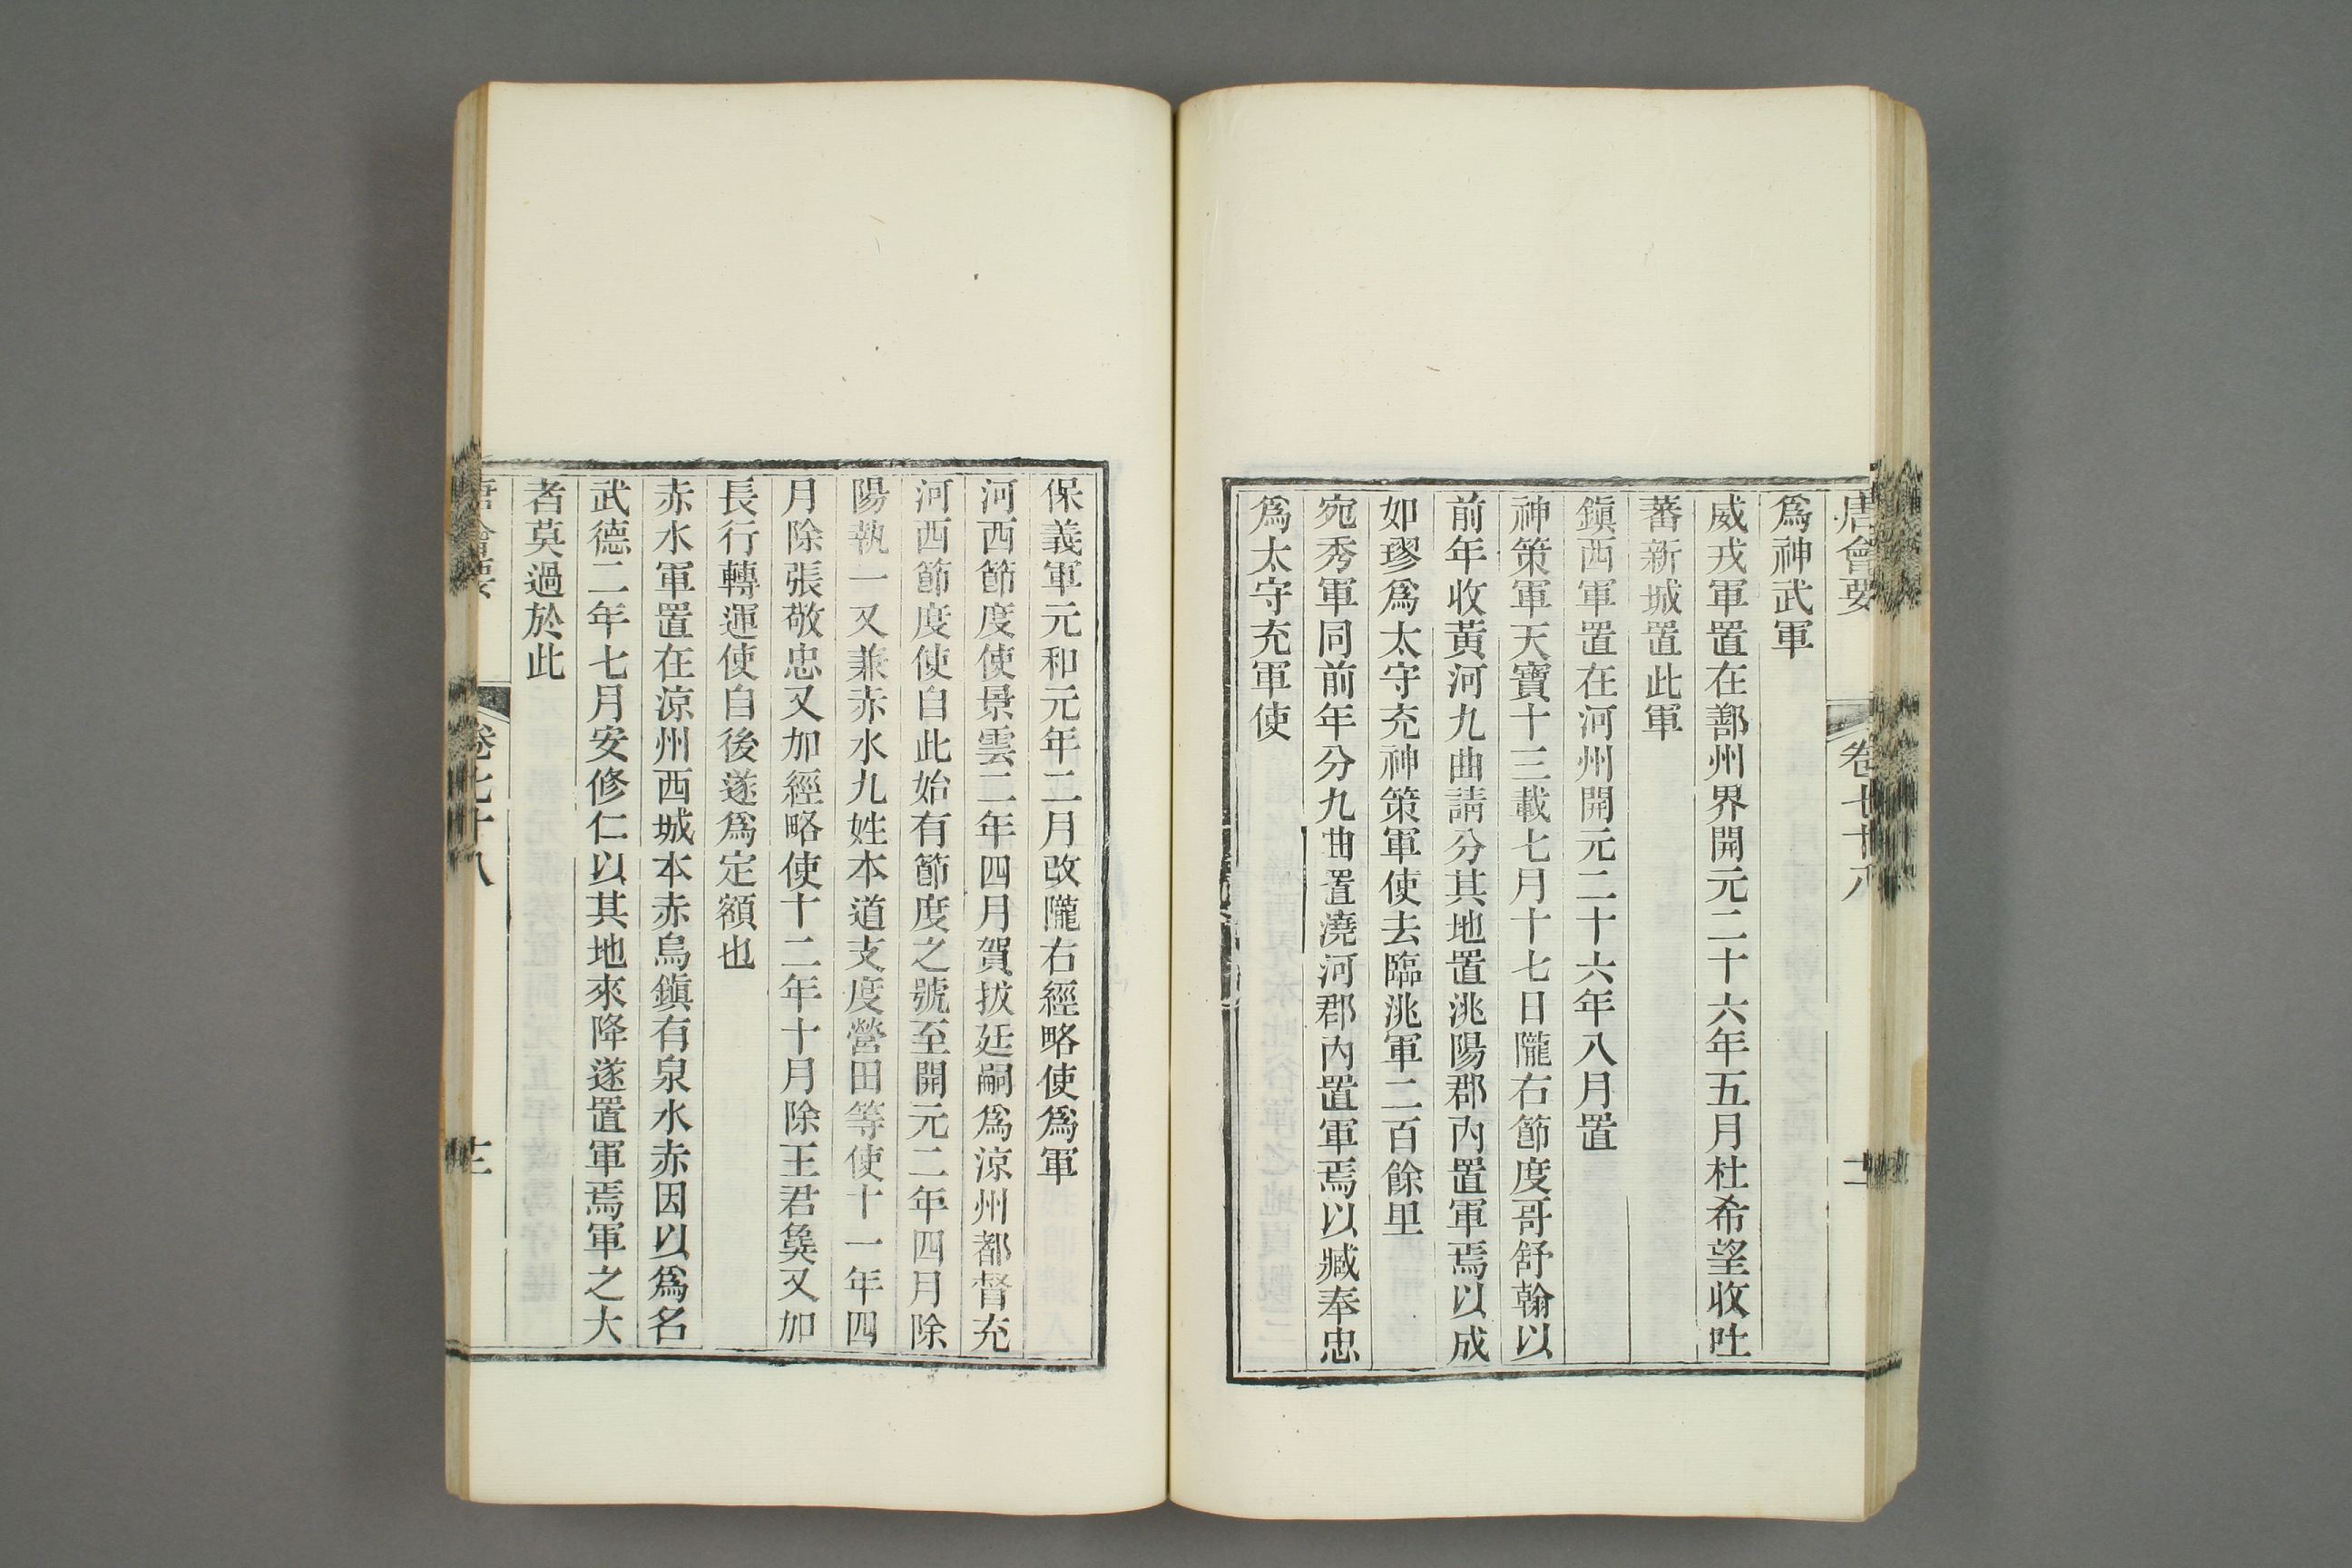 唐會要 卷七十八 十二
爲神武軍
威戎軍置在鄯州界開元二十六年五月杜希望收吐
蕃新城置此軍
鎭西軍置在河州開元二十六年八月置
神策軍天寶十三載七月十七日隴右節度哥舒翰以
前年收黃河九曲請分其地置洮陽郡內置軍焉以成
如璆爲太守充神策軍使去臨洮軍二百餘里
宛秀軍同前年分九曲置澆河郡內置軍焉以臧奉忠
爲太守充軍使
保義軍元和元年二月改隴右經略使爲軍
河西節度使景雲二年四月賀拔延嗣爲涼州都督充
河西節度使自此始有節度之號至開元二年四月除
陽執一又兼赤水九姓本道支度營田等使十一年四
月除張敬忠又加經略使十二年十月除王君㚟又加
長行轉運使自後遂爲定額也
赤水軍置在涼州西城本赤烏鎭有泉水赤因以爲名
武德二年七月安修仁以其地來降遂置軍焉軍之大
者莫過於此
唐會要 卷七十八 十三